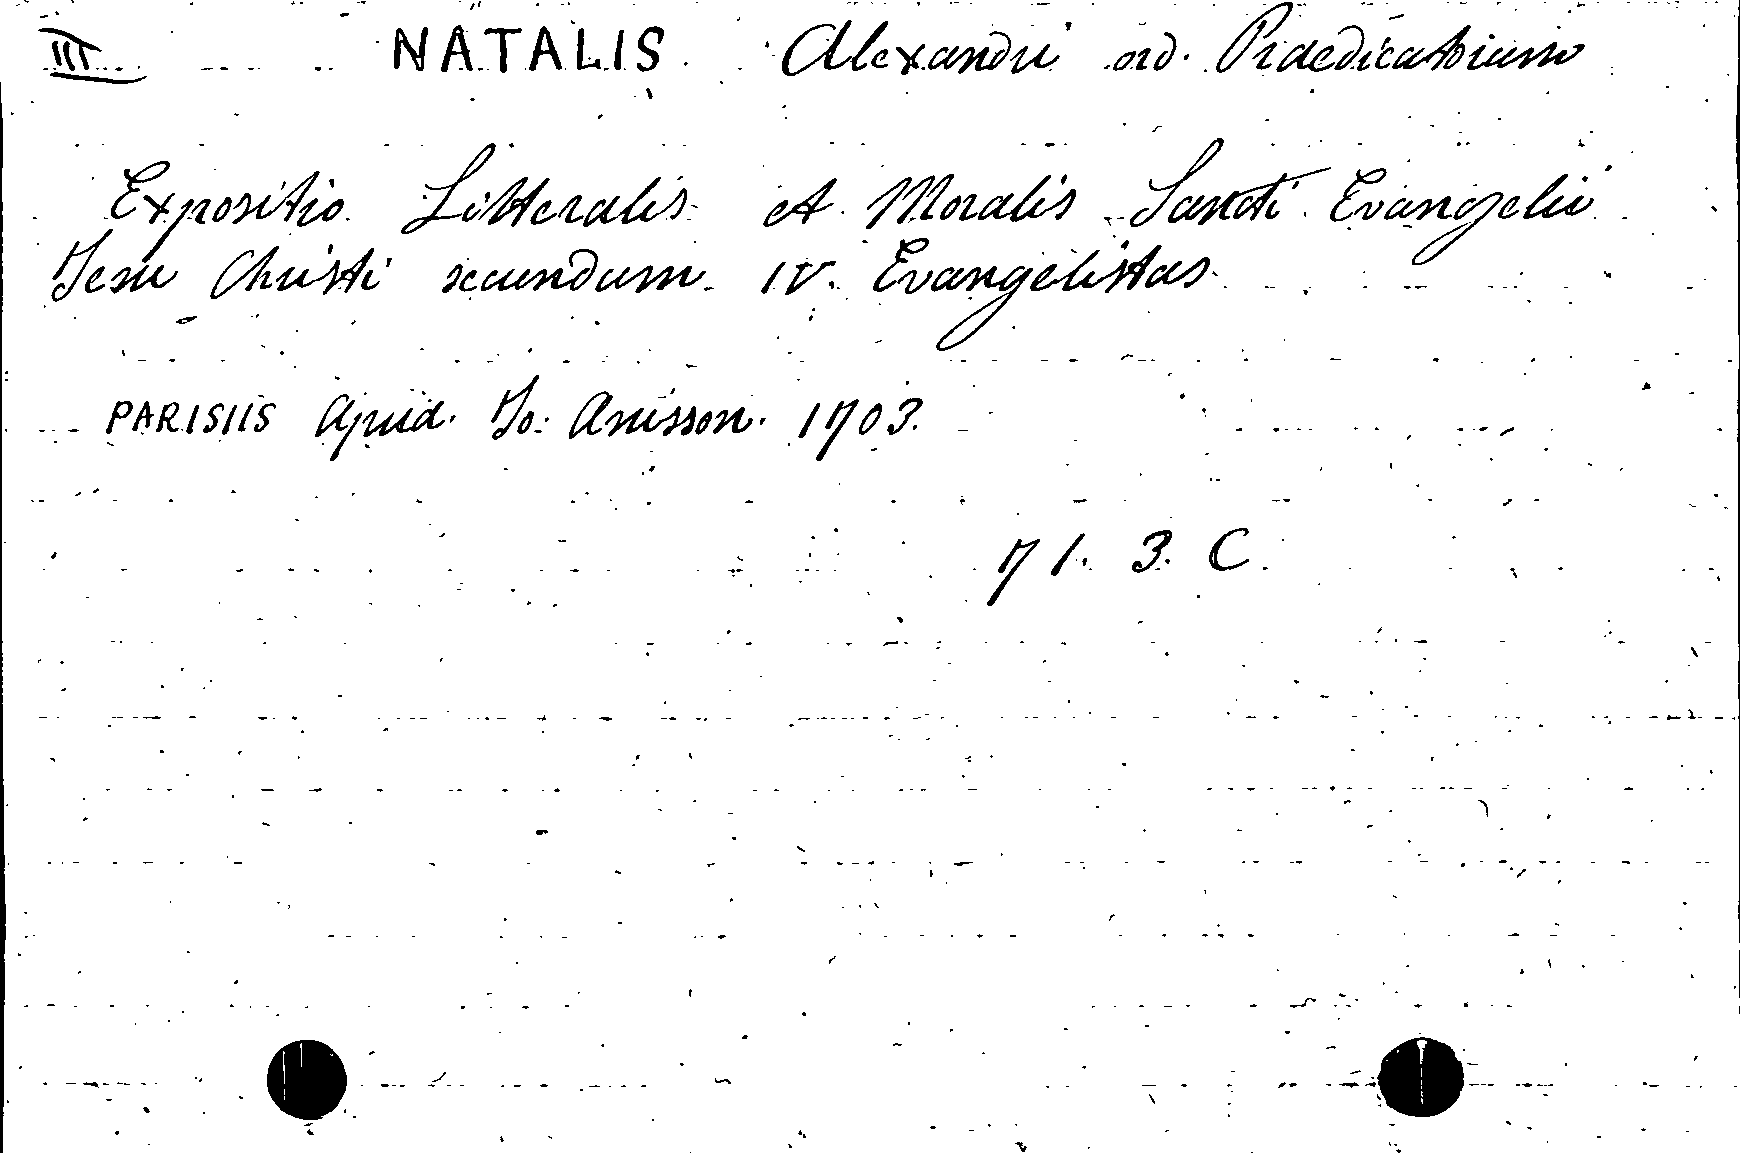 III NATALIS Alexandri ord. Praedicatorum
Expositio Litteralis et Moralis Sancti Evangelii
Jesu Christi secundum IV. Evangelistas.
PARISIIS Apud. Jo: Anisson. 1703.
71. 3. C.